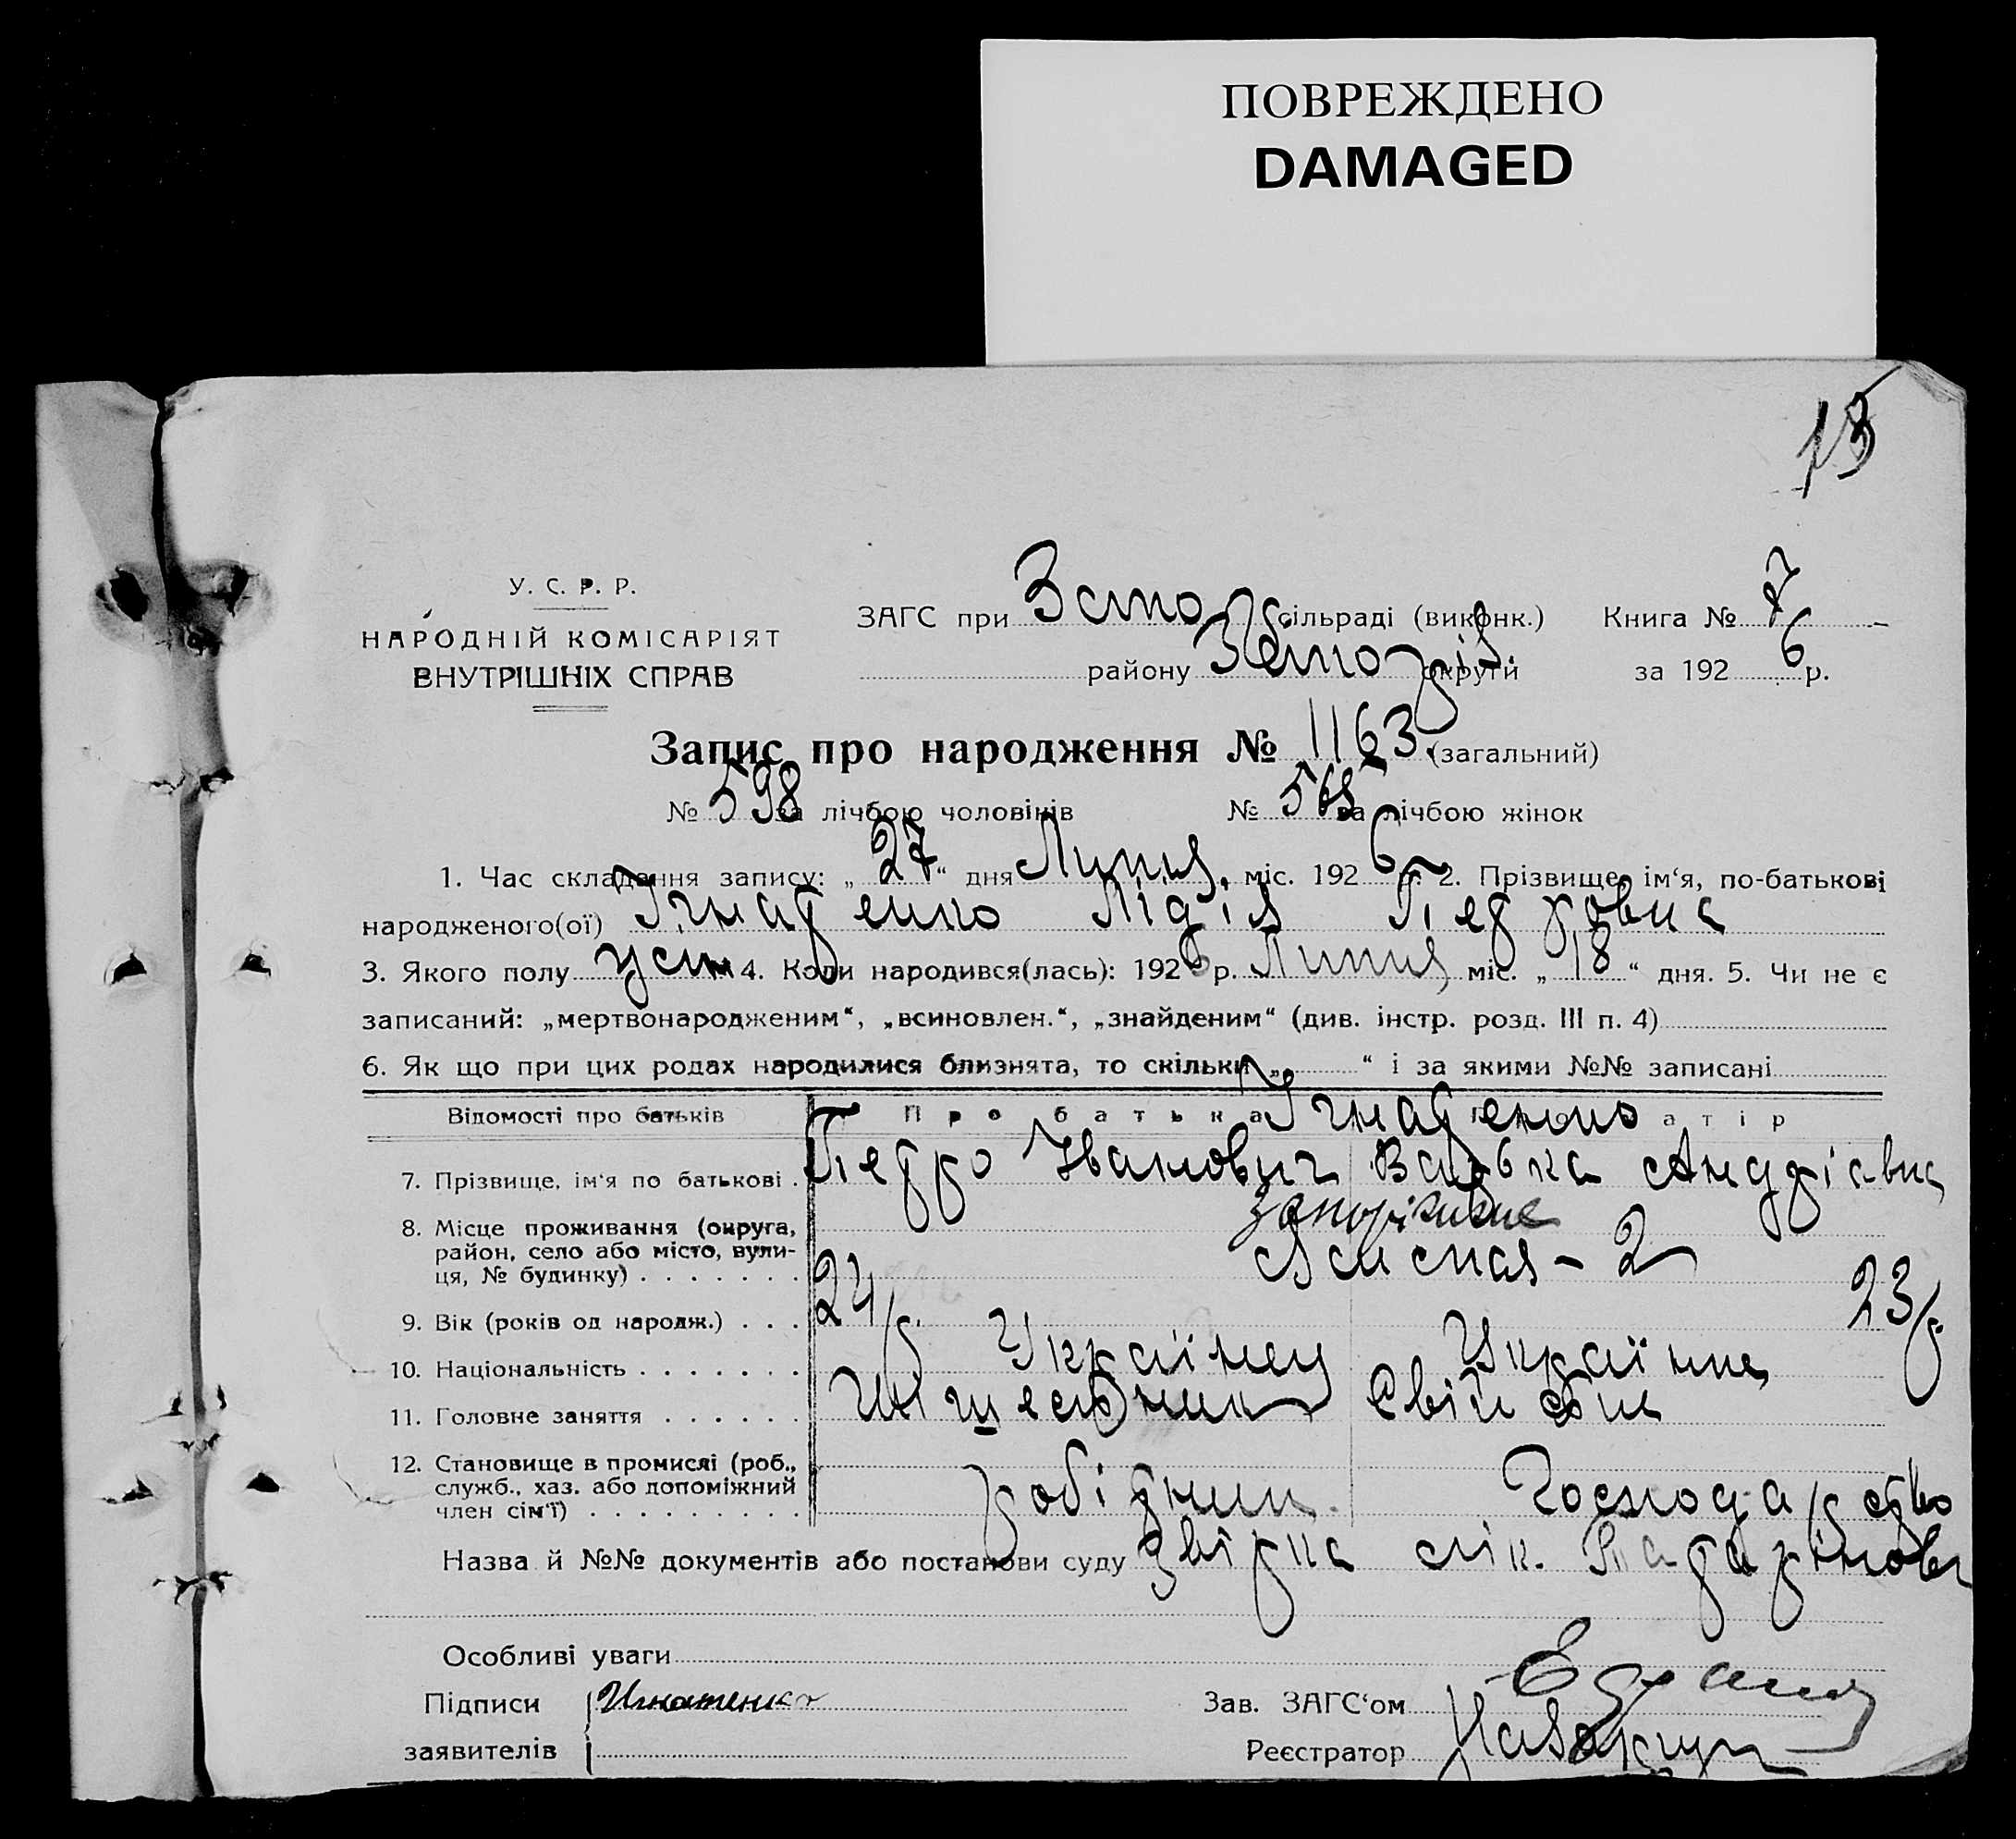 ПОВРЕЖДЕНО
DAMAGED
У. С. Р. Р.
НАРОДНІЙ КОМІСАРІЯТ
ВНУТРІШНІХ СПРАВ
ЗАГС при сільраді (виконк.) Книга № 7
району округи за 1926 р.
Запис про народження № 1163 (загальний)
№ 598 за лічбою чоловіків № 565 за лічбою жінок
1. Час складання запису: „27“ дня Липня міс. 1926 р. 2. Прізвище, ім'я, по-батькові
народженого(ої) Ігнатенко Лідія Петровна
3. Якого полу 4. Коли народився(лась): 1926 р. Липня міс. „18“ дня. 5. Чи не є
записаний: „мертвонародженим“, „всиновлен.“, „знайденим“ (див. інстр. розд. III п. 4)
6. Як що при цих родах народилися близнята, то скільки „ “ і за якими №№ записані
Відомості про батьків Про батька Ігнатенко
7. Прізвище, ім'я по батькові . Петро Іванович Андріівна
8. Місце проживання (округа, район, село або місто, вулиця, № будинку) . . . . . . . Запоріжжє
- 2
9. Вік (років од народж.) . . . 24 р. 23 р.
10. Національність . . . . . . . Українец Українка
11. Головне заняття . . . . . .
12. Становище в промислі (роб., служб., хаз. або допоміжний член сім'ї) . . . . . . . . . робітник Господарство
Назва й №№ документів або постанови суду
Особливі уваги
Підписи Игнатенко Зав. ЗАГС'ом
заявителів Реєстратор